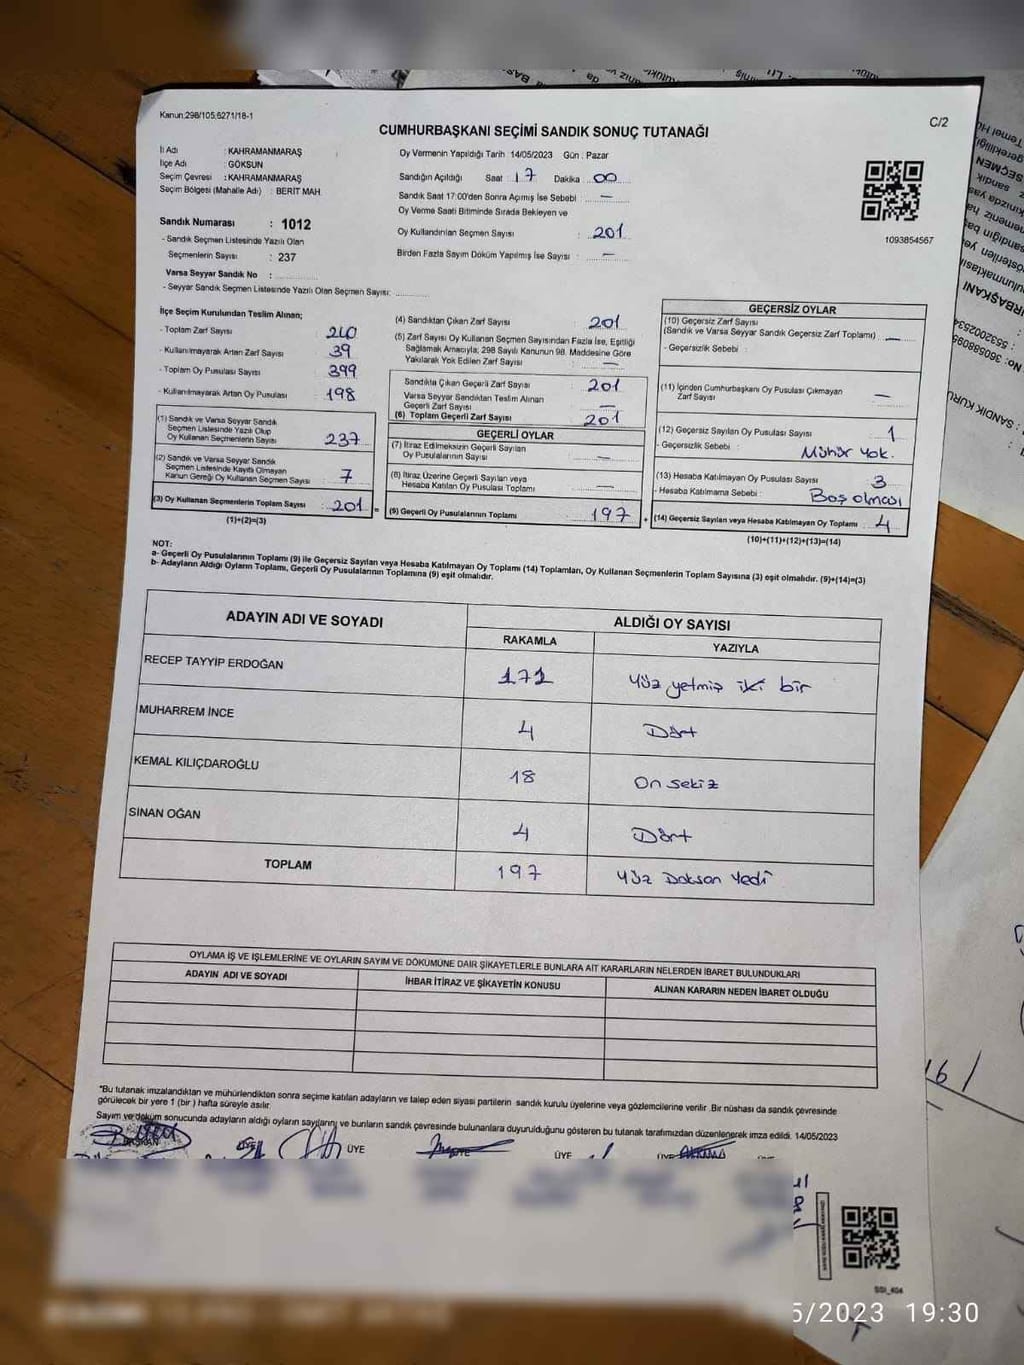 Kanun:298/105,6271/18-1
C/2
CUMHURBAŞKANI SEÇİMİ SANDIK SONUÇ TUTANAĞI
İl Adı : KAHRAMANMARAŞ
İlçe Adı : GÖKSUN
Seçim Çevresi : KAHRAMANMARAŞ
Seçim Bölgesi (Mahalle Adı) : BERİT MAH
Sandık Numarası : 1012
- Sandık Seçmen Listesinde Yazılı Olan
Seçmenlerin Sayısı : 237
Varsa Seyyar Sandık No :
- Seyyar Sandık Seçmen Listesinde Yazılı Olan Seçmen Sayısı:
Oy Vermenin Yapıldığı Tarih 14/05/2023 Gün : Pazar
Sandığın Açıldığı Saat : 17 Dakika : 00
Sandık Saat 17:00'den Sonra Açımış İse Sebebi : —
Oy Verme Saati Bitiminde Sırada Bekleyen ve
Oy Kullandırılan Seçmen Sayısı : 201
Birden Fazla Sayım Döküm Yapılmış İse Sayısı : —
1093854567
İlçe Seçim Kurulundan Teslim Alınan;
- Toplam Zarf Sayısı : 240
- Kullanılmayarak Artan Zarf Sayısı : 39
- Toplam Oy Pusulası Sayısı : 399
- Kullanılmayarak Artan Oy Pusulası : 198
(1) Sandık ve Varsa Seyyar Sandık
Seçmen Listesinde Yazılı Olup
Oy Kullanan Seçmenlerin Sayısı : 237
(2) Sandık ve Varsa Seyyar Sandık
Seçmen Listesinde Kayıtlı Olmayan
Kanun Gereği Oy Kullanan Seçmen Sayısı : 7
(3) Oy Kullanan Seçmenlerin Toplam Sayısı : 201 =
(1)+(2)=(3)
(4) Sandıktan Çıkan Zarf Sayısı : 201
(5) Zarf Sayısı Oy Kullanan Seçmen Sayısından Fazla İse, Eşitliği
Sağlamak Amacıyla; 298 Sayılı Kanunun 98. Maddesine Göre
Yakılarak Yok Edilen Zarf Sayısı :
Sandıkta Çıkan Geçerli Zarf Sayısı : 201
Varsa Seyyar Sandıktan Teslim Alınan
Geçerli Zarf Sayısı : —
(6) Toplam Geçerli Zarf Sayısı : 201
GEÇERLİ OYLAR
(7) İtiraz Edilmeksizin Geçerli Sayılan
Oy Pusulalarının Sayısı : —
(8) İtiraz Üzerine Geçerli Sayılan veya
Hesaba Katılan Oy Pusulası Toplamı : —
(9) Geçerli Oy Pusulalarının Toplamı : 197 +
GEÇERSİZ OYLAR
(10) Geçersiz Zarf Sayısı
(Sandık ve Varsa Seyyar Sandık Geçersiz Zarf Toplamı) : —
- Geçersizlik Sebebi :
(11) İçinden Cumhurbaşkanı Oy Pusulası Çıkmayan
Zarf Sayısı : —
(12) Geçersiz Sayılan Oy Pusulası Sayısı : 1
- Geçersizlik Sebebi : Mühür yok.
(13) Hesaba Katılmayan Oy Pusulası Sayısı : 3
- Hesaba Katılmama Sebebi : Boş olması
(14) Geçersiz Sayılan veya Hesaba Katılmayan Oy Toplamı : 4
(10)+(11)+(12)+(13)=(14)
NOT:
a- Geçerli Oy Pusulalarının Toplamı (9) ile Geçersiz Sayılan veya Hesaba Katılmayan Oy Toplamı (14) Toplamları, Oy Kullanan Seçmenlerin Toplam Sayısına (3) eşit olmalıdır. (9)+(14)=(3)
b- Adayların Aldığı Oyların Toplamı, Geçerli Oy Pusulalarının Toplamına (9) eşit olmalıdır.
ADAYIN ADI VE SOYADI
ALDIĞI OY SAYISI
RAKAMLA YAZIYLA
RECEP TAYYİP ERDOĞAN 171 Yüz yetmiş iki bir
MUHARREM İNCE 4 Dört
KEMAL KILIÇDAROĞLU 18 On sekiz
SİNAN OĞAN 4 Dört
TOPLAM 197 Yüz Doksan Yedi
OYLAMA İŞ VE İŞLEMLERİNE VE OYLARIN SAYIM VE DÖKÜMÜNE DAİR ŞİKAYETLERLE BUNLARA AİT KARARLARIN NELERDEN İBARET BULUNDUKLARI
ADAYIN ADI VE SOYADI İHBAR İTİRAZ VE ŞİKAYETİN KONUSU ALINAN KARARIN NEDEN İBARET OLDUĞU
*Bu tutanak imzalandıktan ve mühürlendikten sonra seçime katılan adayların ve talep eden siyasi partilerin sandık kurulu üyelerine veya gözlemcilerine verilir .Bir nüshası da sandık çevresinde
görülecek bir yere 1 (bir ) hafta süreyle asılır.
Sayım ve döküm sonucunda adayların aldığı oyların sayılarını ve bunların sandık çevresinde bulunanlara duyurulduğunu gösteren bu tutanak tarafımızdan düzenlenerek imza edildi. 14/05/2023
ÜYE ÜYE ÜYE ÜYE
5/2023 19:30